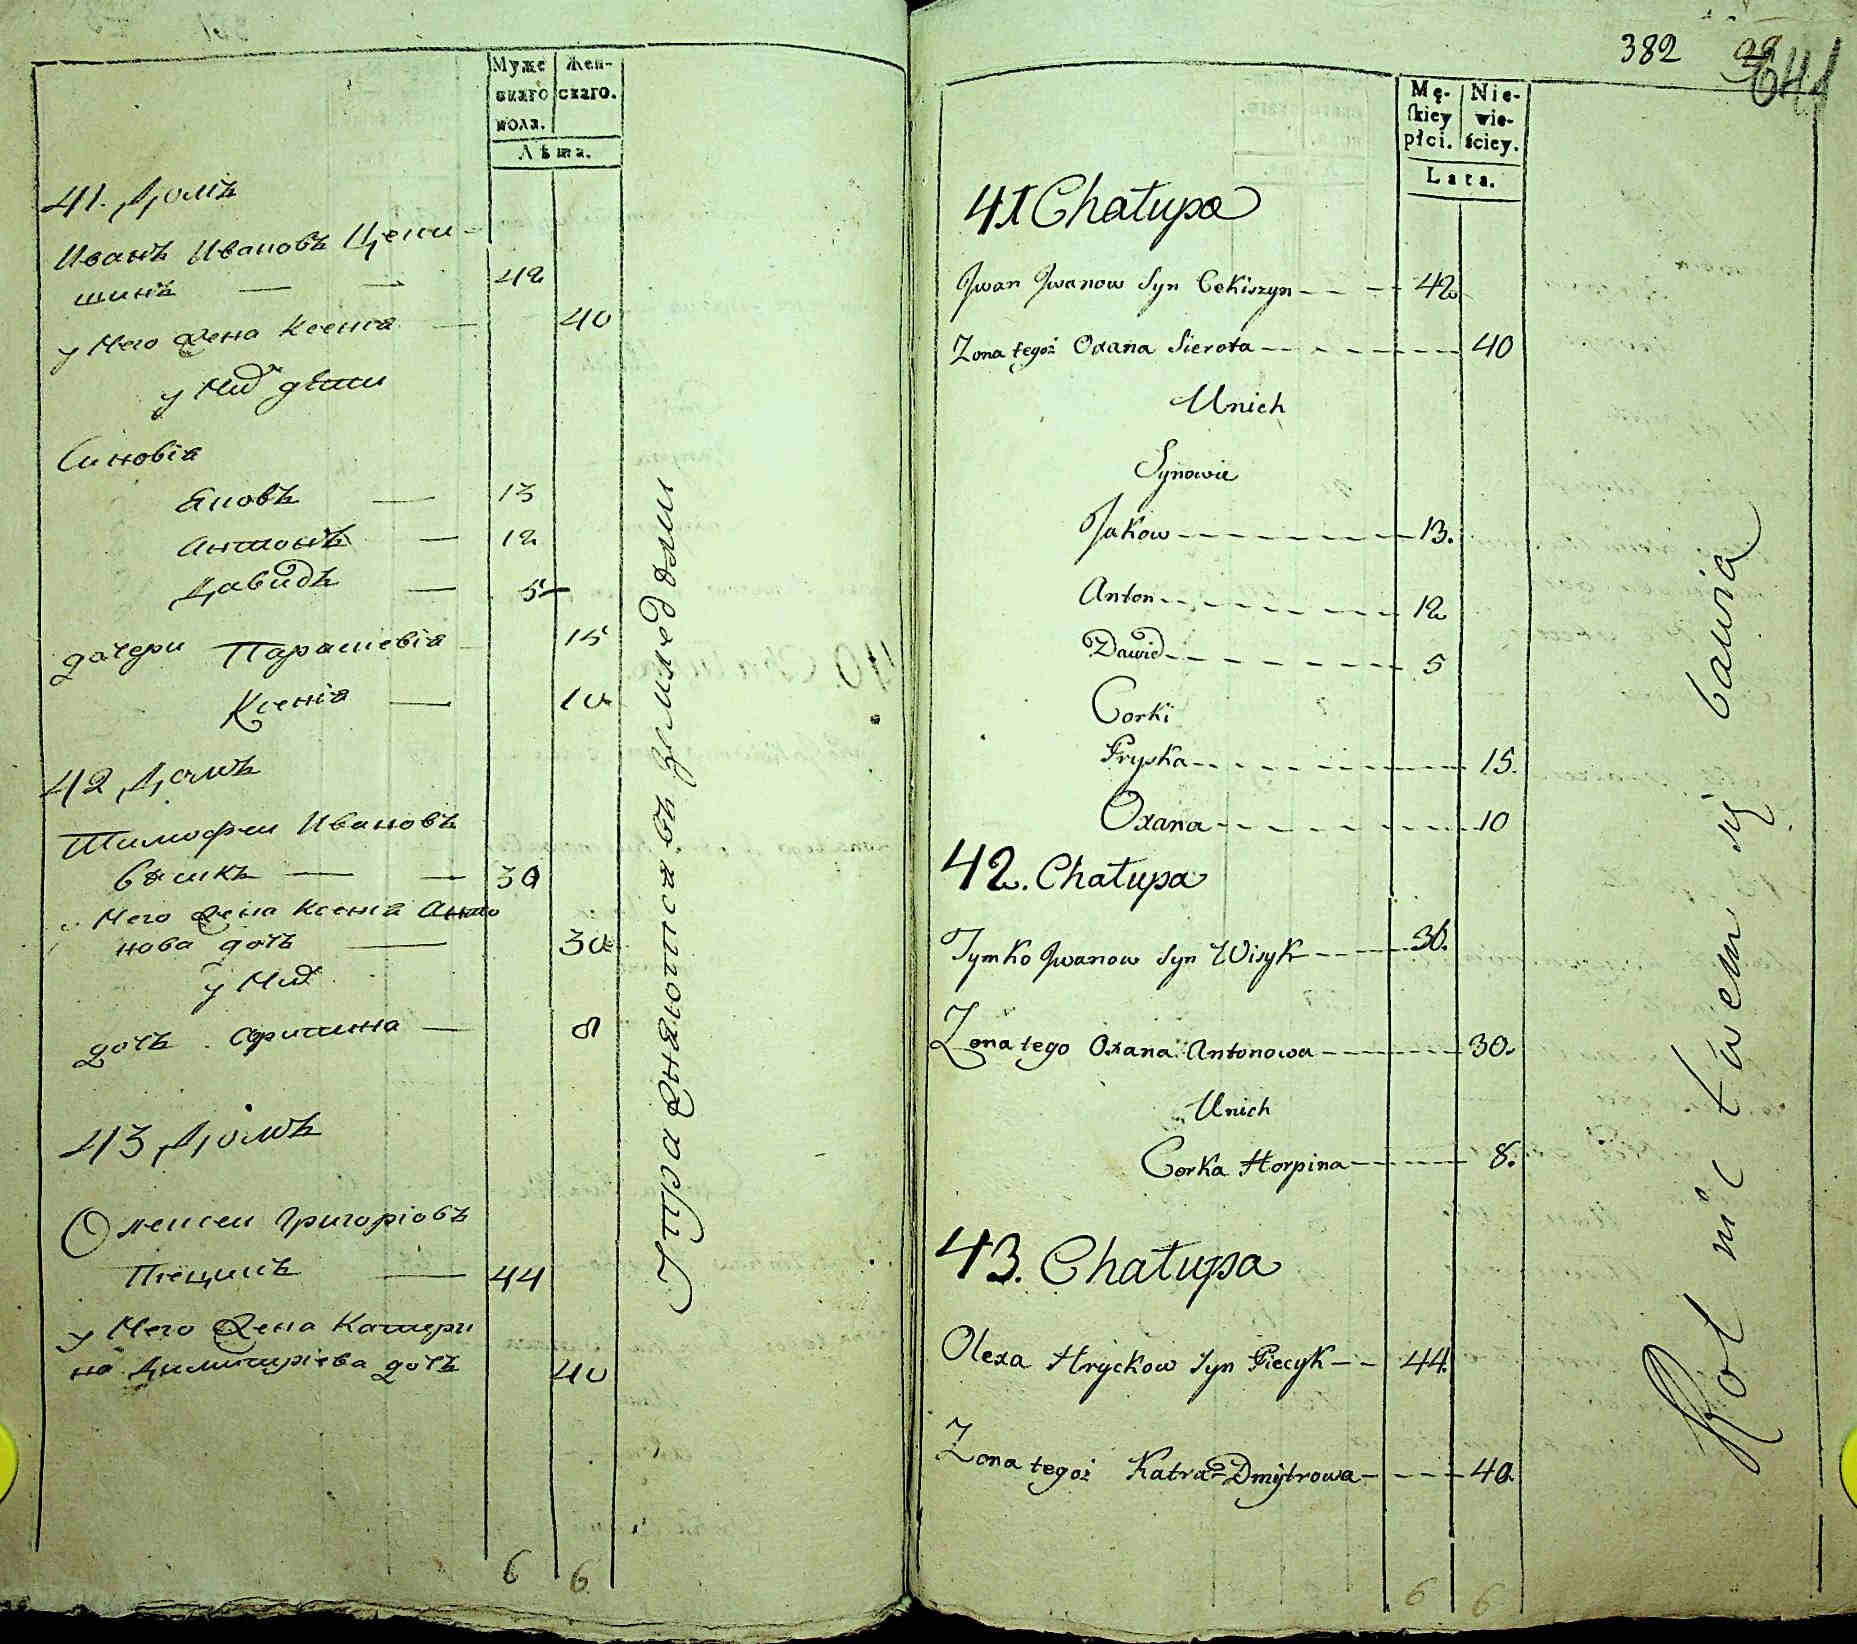 Муже Жен-
скаго скаго.
пола.
Лѣта.
41. Домъ
Иванъ Ивановъ Цеки-
шинъ — — 42
у Него жена Ксенія — 40
у Них дѣти
Синовія
Яковъ — 13
Антонъ — 12
Давидъ — 5
дочери Парашевія — 15
Ксенія — 10
42 Домъ
Тимофеи Ивановъ
висикъ — — 30
у Него жена Ксенія Анто
нова дочь — 30
у Них
дочь Афримина — 8
43 Домъ
Олексеи Григоріовъ
Пѣцикъ — 44
у Него жена Катери
на Димитріева дочь 40
6 6
Упражняются въ земледѣліи
382
641
Mę- Nie-
skiey wie-
płci. ściey.
Lata.
41 Chałupa
Jwan Jwanow Syn Cekiszyn - - - 42
Zona tegoż Oxana Sierota - - - 40
U nich
Synowie
Jakow - - - 13.
Anton - - - 12
Dawid - - - 5
Corki
Pryska - - - 15.
Oxana - - - 10
42. Chałupa
Tymko Jwanow Syn Wisyk - - - 30.
Zona tego Oxana Antonowa - - - 30.
U nich
Corka Horpina - - - 8.
43. Chałupa
Olexa Hryckow Syn Piecyk - - 44.
Zona tegoż Katra Dmytrowa - - - 40.
6 6
Rolnictwem się bawią